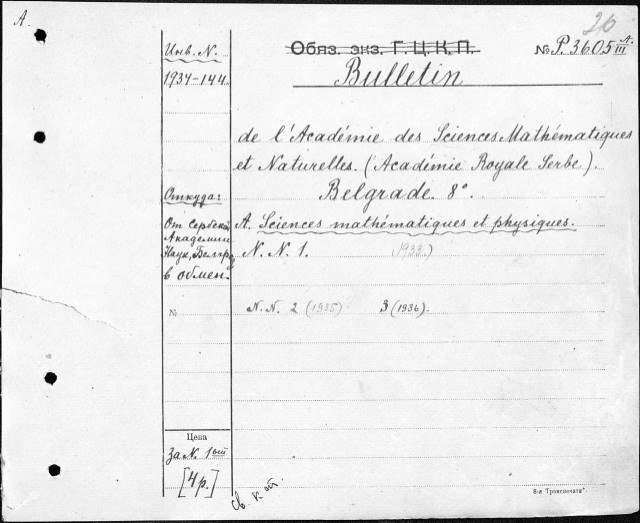 A.
26
Инв. N.
Обяз. экз. Г.Ц.К.П.
№ P.3605 A. III
1934-144
Bulletin
de l'Académie des Sciences Mathématiques
et Naturelles. (Académie Royale Serbe).
Откуда:
Belgrade. 8°.
От Сербской
Академии
Наук, Белгрд
в обмен.
A. Sciences mathématiques et physiques.
N. N. 1. (1933)
№
N. N. 2 (1935) 3 (1936).
Цена
за N. 1ый
[4 р.]
св. к от.
8-я Транспечати"